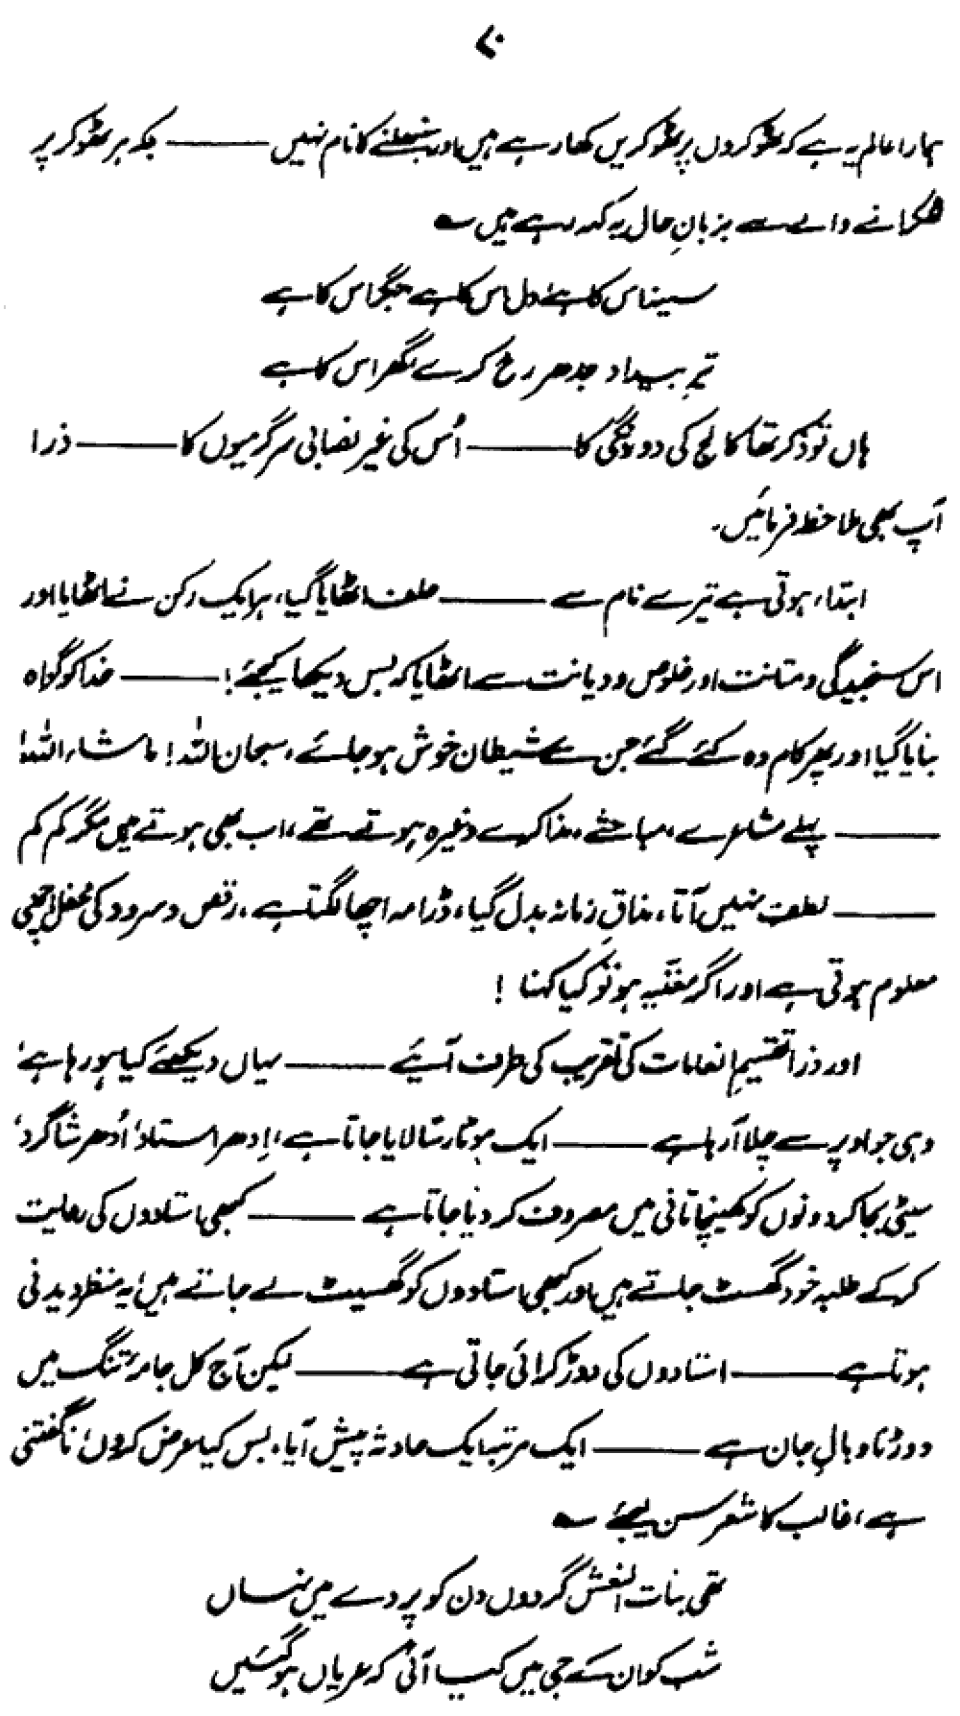 ۷۰
ہمارا عالم یہ ہے کہ ٹھوکروں پر ٹھوکریں کھا رہے ہیں اور سنبھلنے کا نام نہیں —— بلکہ ہر ٹھوکر پر
ٹھکرانے والے سے بزبانِ حال یہ کہہ رہے ہیں ؎
سینہ اس کا ہے، دل اس کا ہے جگر اس کا ہے
تیرِ بیداد جدھر رخ کرے گھر اس کا ہے
ہاں تو ذکر تھا کالج کی دو رنگی کا —— اُس کی غیر نصابی سرگرمیوں کا —— ذرا
آپ بھی ملاحظہ فرمائیں۔
ابتداء ہوتی ہے تیرے نام سے —— حلف اٹھایا گیا، ہر ایک رکن نے اٹھایا اور
اس سنجیدگی و متانت اور خلوص و دیانت سے اٹھایا کہ بس دیکھا کیجئے! —— خدا کو گواہ
بنایا گیا اور پھر کام وہ کئے گئے جن سے شیطان خوش ہو جائے، سبحان اللہ! ماشاء اللہ!
—— پہلے مشاعرے، مباحثے، مذاکرے وغیرہ ہوتے تھے، اب بھی ہوتے ہیں مگر کم کم
—— لطف نہیں آتا، مذاقِ زمانہ بدل گیا، ڈرامہ اچھا لگتا ہے، رقص و سرود کی محفل اچھی
معلوم ہوتی ہے اور اگر مغنّیہ ہو تو کیا کہنا !
اور ذرا تقسیمِ انعامات کی تقریب کی طرف آئیے —— یہاں دیکھئے کیا ہو رہا ہے،
وہی جو اوپر سے چلا آ رہا ہے —— ایک موٹا رسّا لایا جاتا ہے، اِدھر استاد، اُدھر شاگرد،
سیٹی بجا کر دونوں کو کھینچا تانی میں مصروف کر دیا جاتا ہے —— کبھی استادوں کی رعایت
کر کے طلبہ خود گھسٹ جاتے ہیں اور کبھی استادوں کو گھسیٹ لے جاتے ہیں، یہ منظر دیدنی
ہوتا ہے —— استادوں کی دوڑ کرائی جاتی ہے —— لیکن آج کل جامۂ تنگ میں
دوڑنا وبالِ جان ہے —— ایک مرتبہ ایک حادثہ پیش آیا، بس کیا عرض کروں، ناگفتنی
ہے، غالب کا شعر سن لیجئے ؎
تھی بنات النعش گردوں دن کو پردے میں نہاں
شب کو ان کے جی میں کیا آئی کہ عریاں ہو گئیں